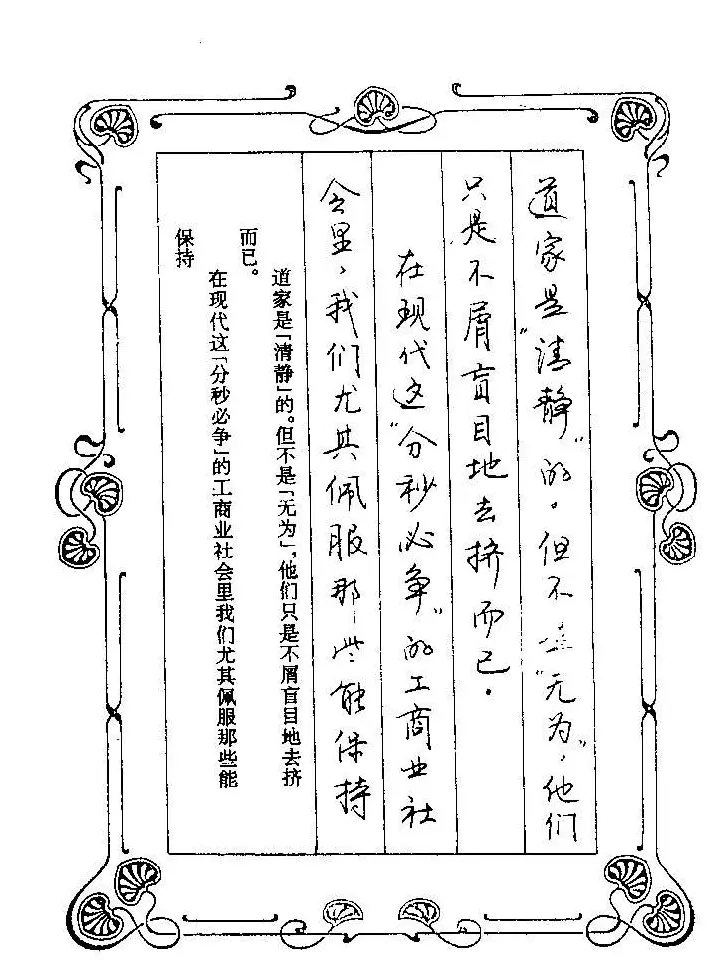 道家是“清静”的。但不是“无为”，他们
只是不屑盲目地去挤而已.
在现代这“分秒必争”的工商业社
会里，我们尤其佩服那些能保持
道家是「清静」的。但不是「无为」，他们只是不屑盲目地去挤
而已。
在现代这「分秒必争」的工商业社会里我们尤其佩服那些能
保持